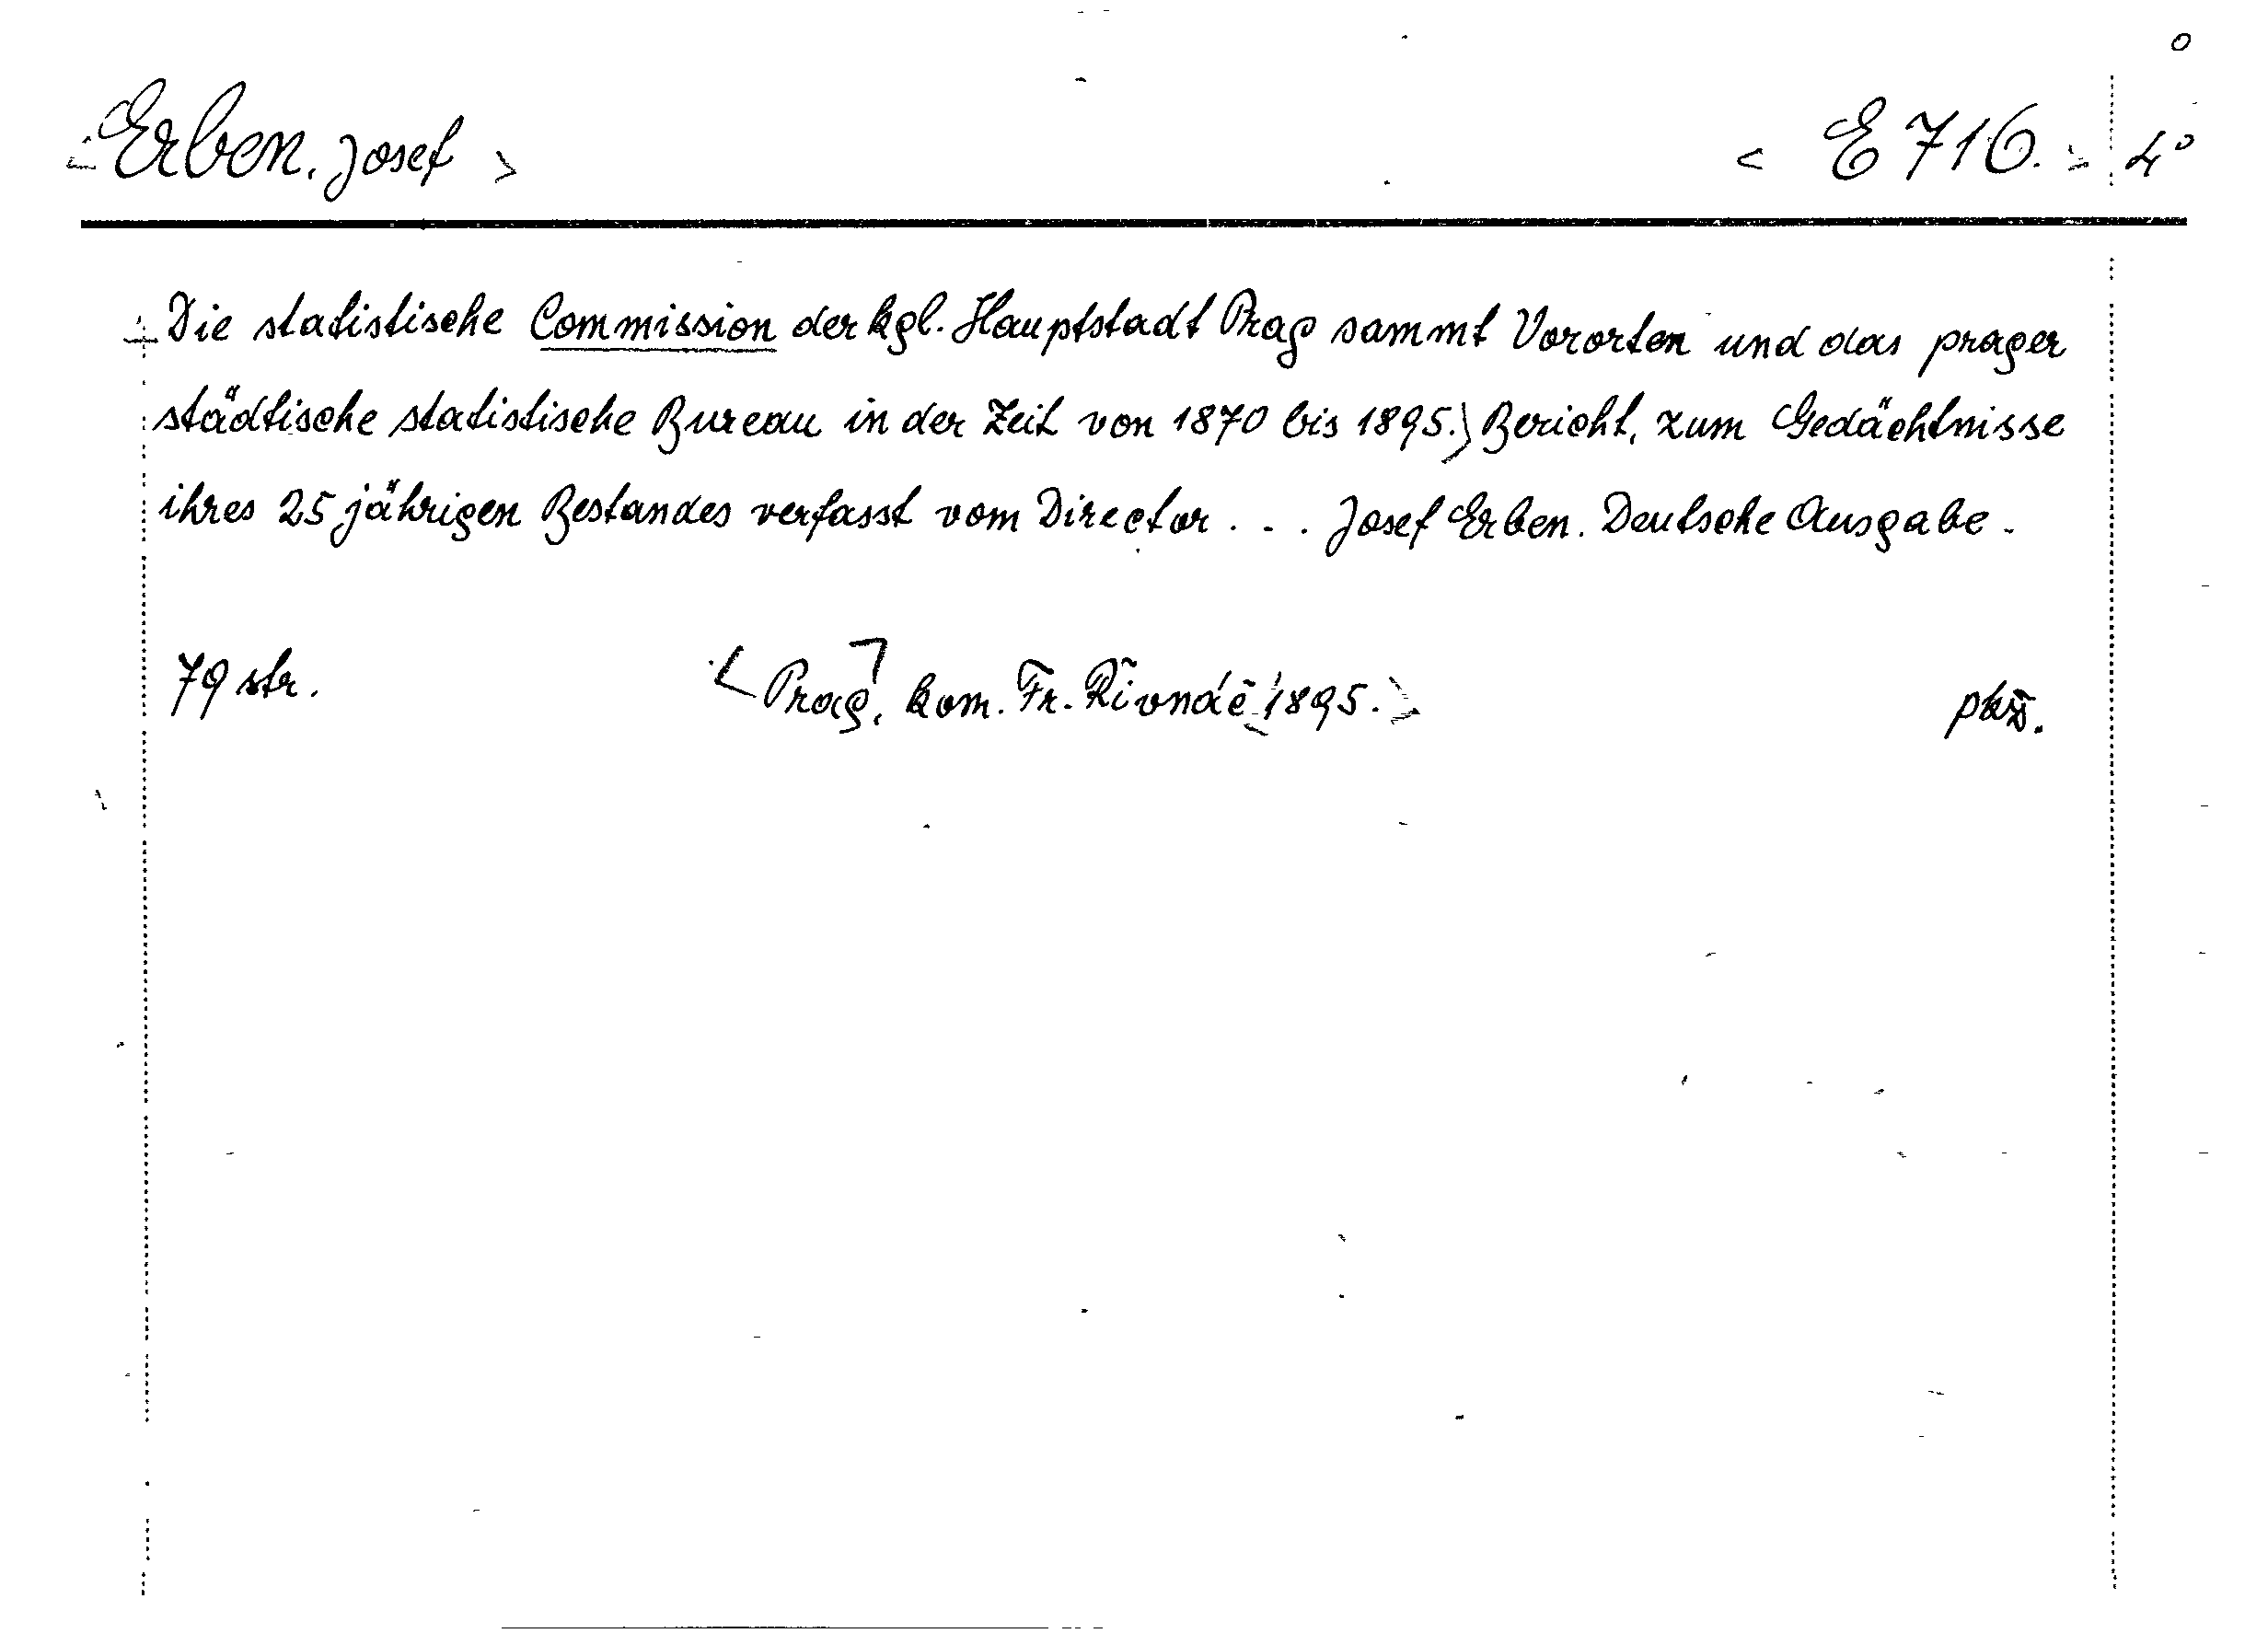 Erben, Josef < E 716. > 4°
Die statistische Commission der kgl. Hauptstadt Prag sammt Vororten und das prager
städtische statistische Bureau in der Zeit von 1870 bis 1895.) Bericht, zum Gedächtnisse
ihres 25 jährigen Bestandes verfasst vom Director . . . Josef Erben. Deutsche Ausgabe.
79 str. < Prag, kom. Fr. Řivnáč 1895. >